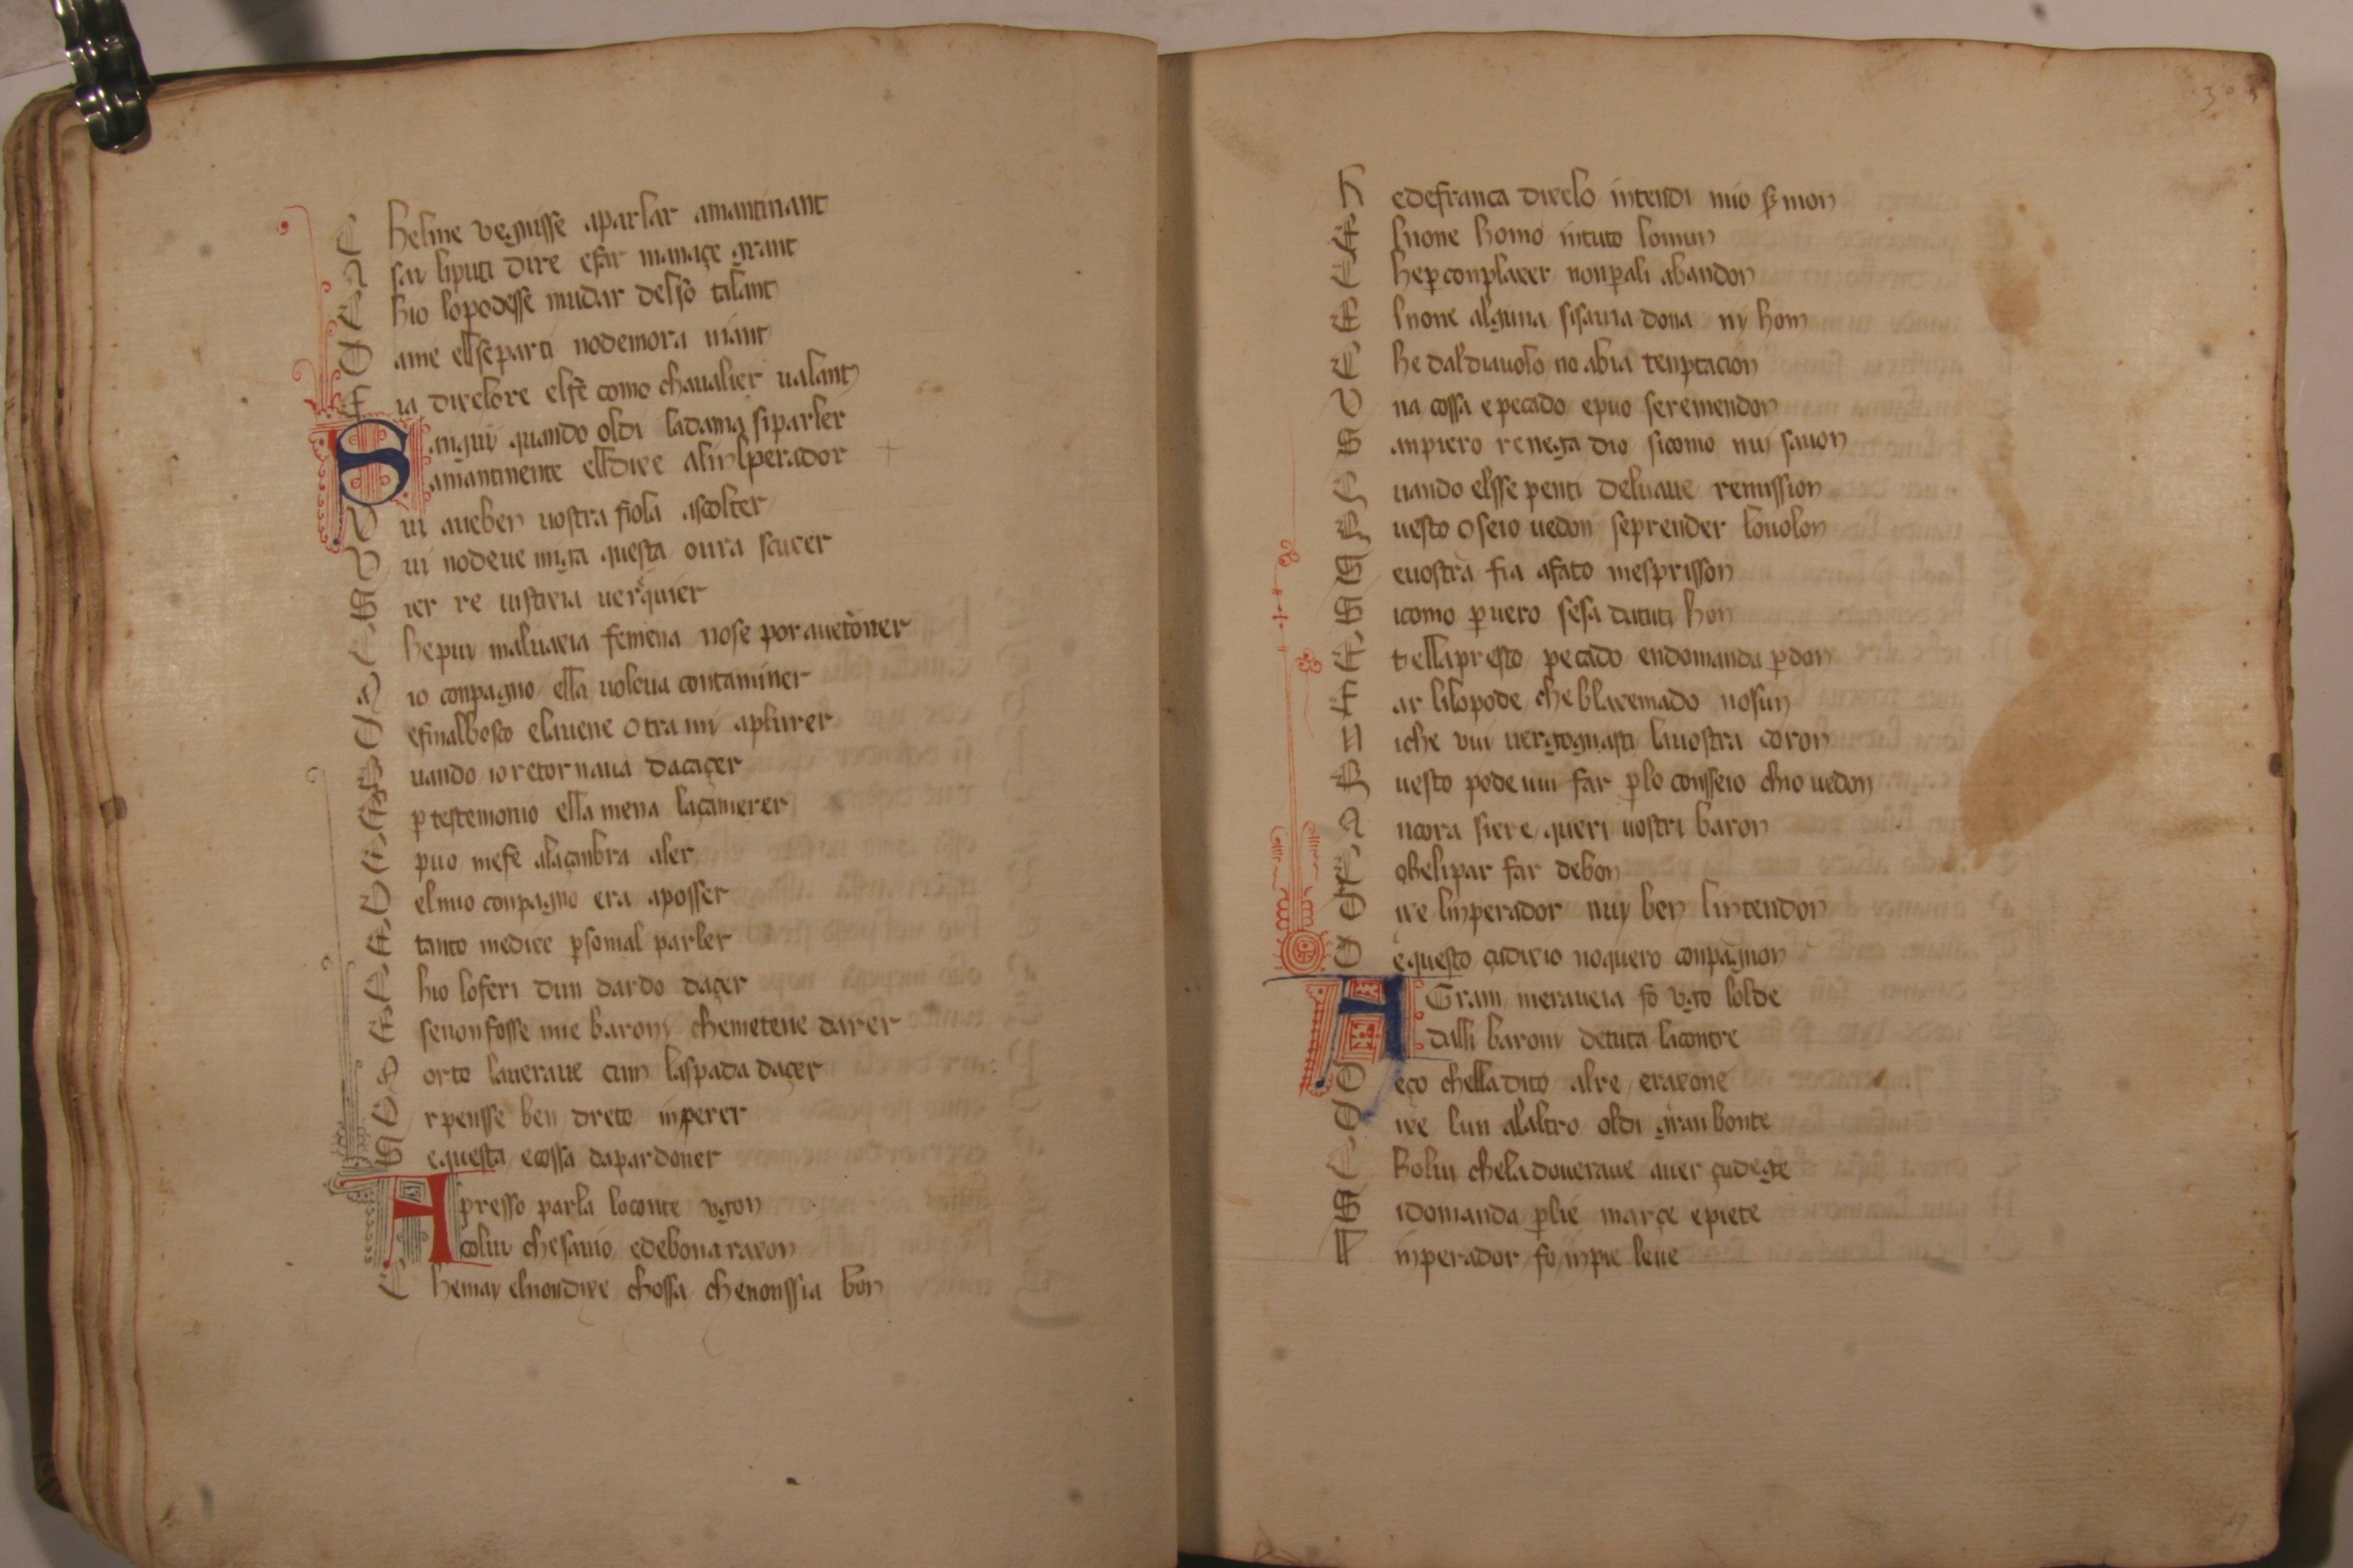 C heline vegnisse aparlar amantinant
A sai liputi dire efar manaçe grant
C hio lopodesse mudar delso talant
D ame elseparti nodemora niant
F ia dixelore elfe como chavalier valant
S anqui quando oldi ladama siparler
amantinente elldixe alinlperador
V ui aveben vostra fiola ascolter
V ui nodeve miga questa oura scuxer
S ier re iustixia ver quier
C hepui malvaxia femena nose por avetoner
M io conpagno ella voleva contaminer
D efinalbosco elavene otra mi apturer
Q uando io retornava dacaçer
E p testemonio ella mena laçamerer
E puo mefe alaçanbra aler
D elmio conpagno era aposser
E tanto medixe p somal parler
C hio loferi dun dardo daçer
E senonfosse mie baroni chemetene darer
M orto laveraue cum laspada daçer
O r pensse ben dreto inperer
S equesta ecossa dapardoner
A presso parla loconte ugon
colui chesavio edebona raxon
C hemay elnondixe chossa chenonssia bon
R edefranca dixelo intendi mio s mon
E lnone homo intuto lomun
C hep conplaxer non p ali abandon
E lnone alguna sisavia dona ny hom
C he daldiavolo no abia tenptacion
V na cossa epecado epuo seremendon
S anpiero renega dio sicomo nuy savon
Q uando elsse penti delvave remission
Q uesto oseio vedon seprender lovolon
S evostra fia afato mesprisson
S icomo p vero sesa datuti hon
E t ellapresto pecado endomanda p don
F ar lilopode che blaxemado nosun
N iche vui vergognasti lavostra coron
Q uesto pode vui far p lo consseio chio vedon
A ncora siere queri vostri baron
C ohelipar far debon
D ixe linperador nuy ben lintendon
D equesto çudixio noquero conpagnon
A Gram meraveia fo ugo lolde
dalli baroni detuta lacontre
D eço chella dito alre eraxone
D ixe lun alaltro oldi gran bonte
C holuy cheladoveraue aver çudege
S idomanda p lie marçe epiete
L inperador fo inpie leve